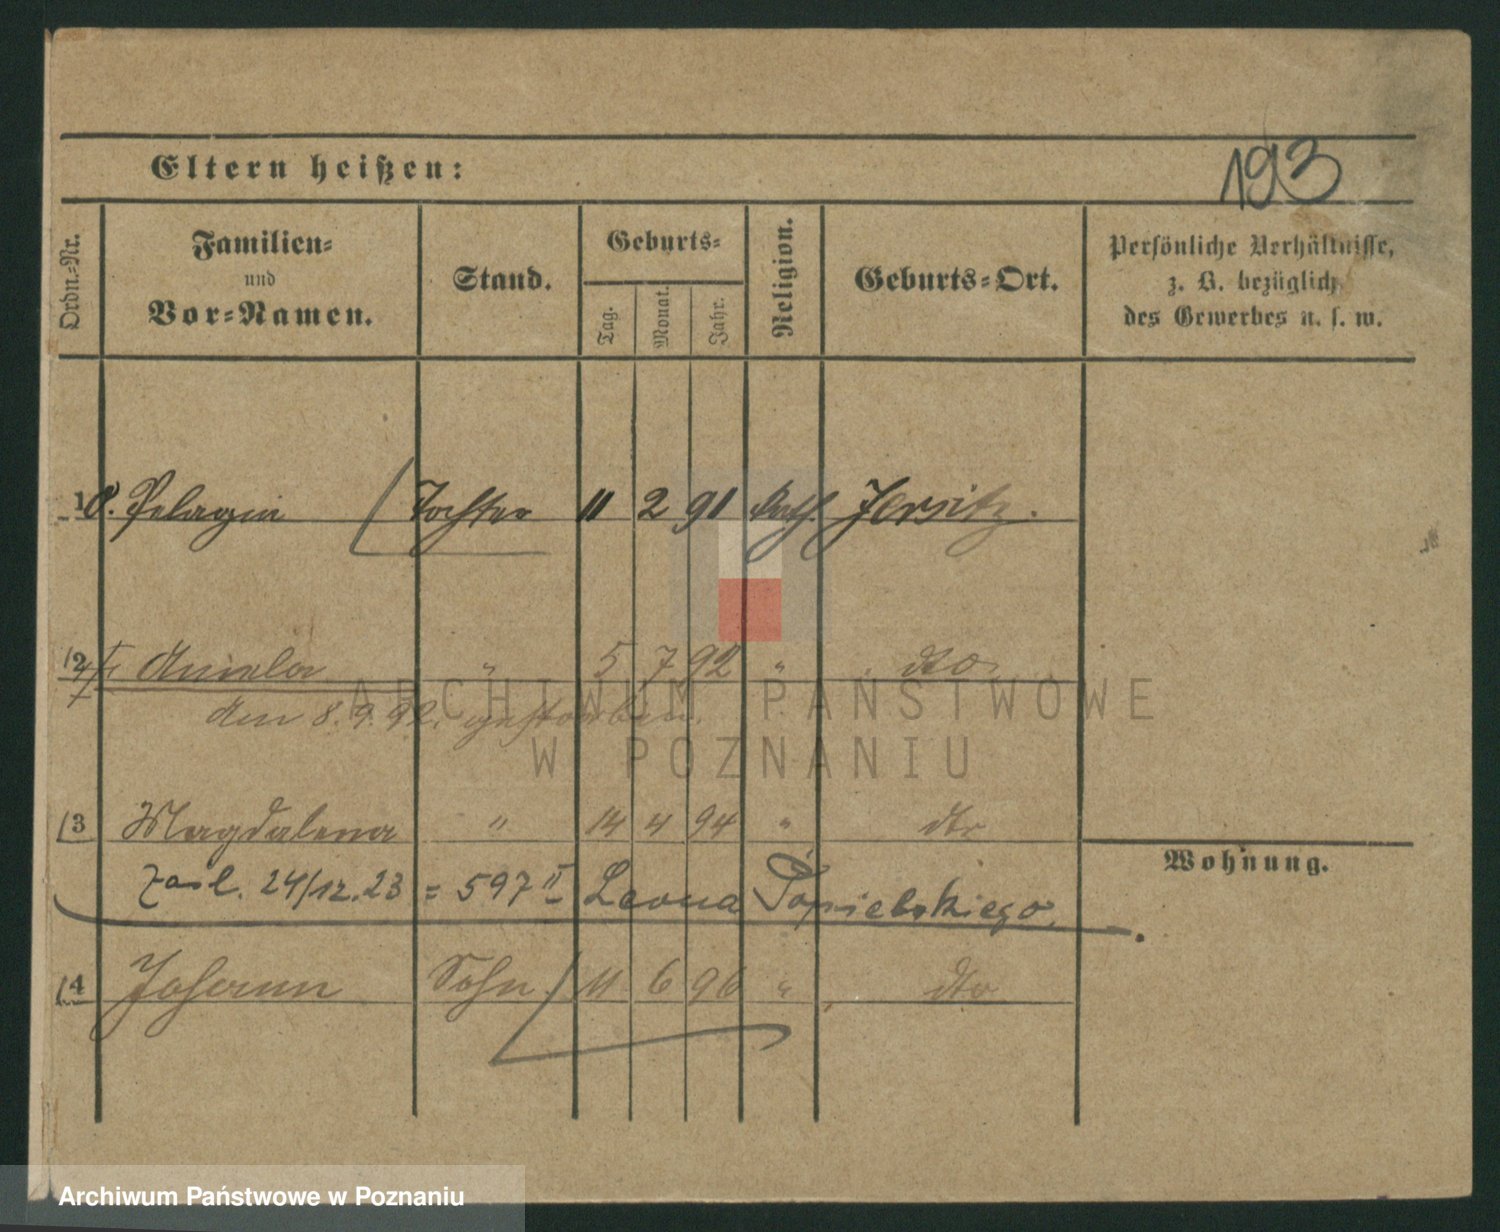 193
Eltern heißen:
Ordn.-Nr.
Familien-
und
Vor-Namen.
Stand.
Geburts-
Tag.
Monat.
Jahr.
Religion.
Geburts-Ort.
Persönliche Verhältnisse,
z. B. bezüglich
des Gewerbes u. s. w.
10. Pelagia Tochter 11 2 91 kath. Jersitz.
12 Aniela " 5 7 92 " dto
am 8.9.92. gestorben.
13 Magdalena " 14 4 94 " dto
Wohnung.
zasl. 24/12.23 = 597 II Leona Popielskiego.
14 Johann Sohn 11 6 96 " dto
ARCHIWUM PAŃSTWOWE
W POZNANIU
Archiwum Państwowe w Poznaniu